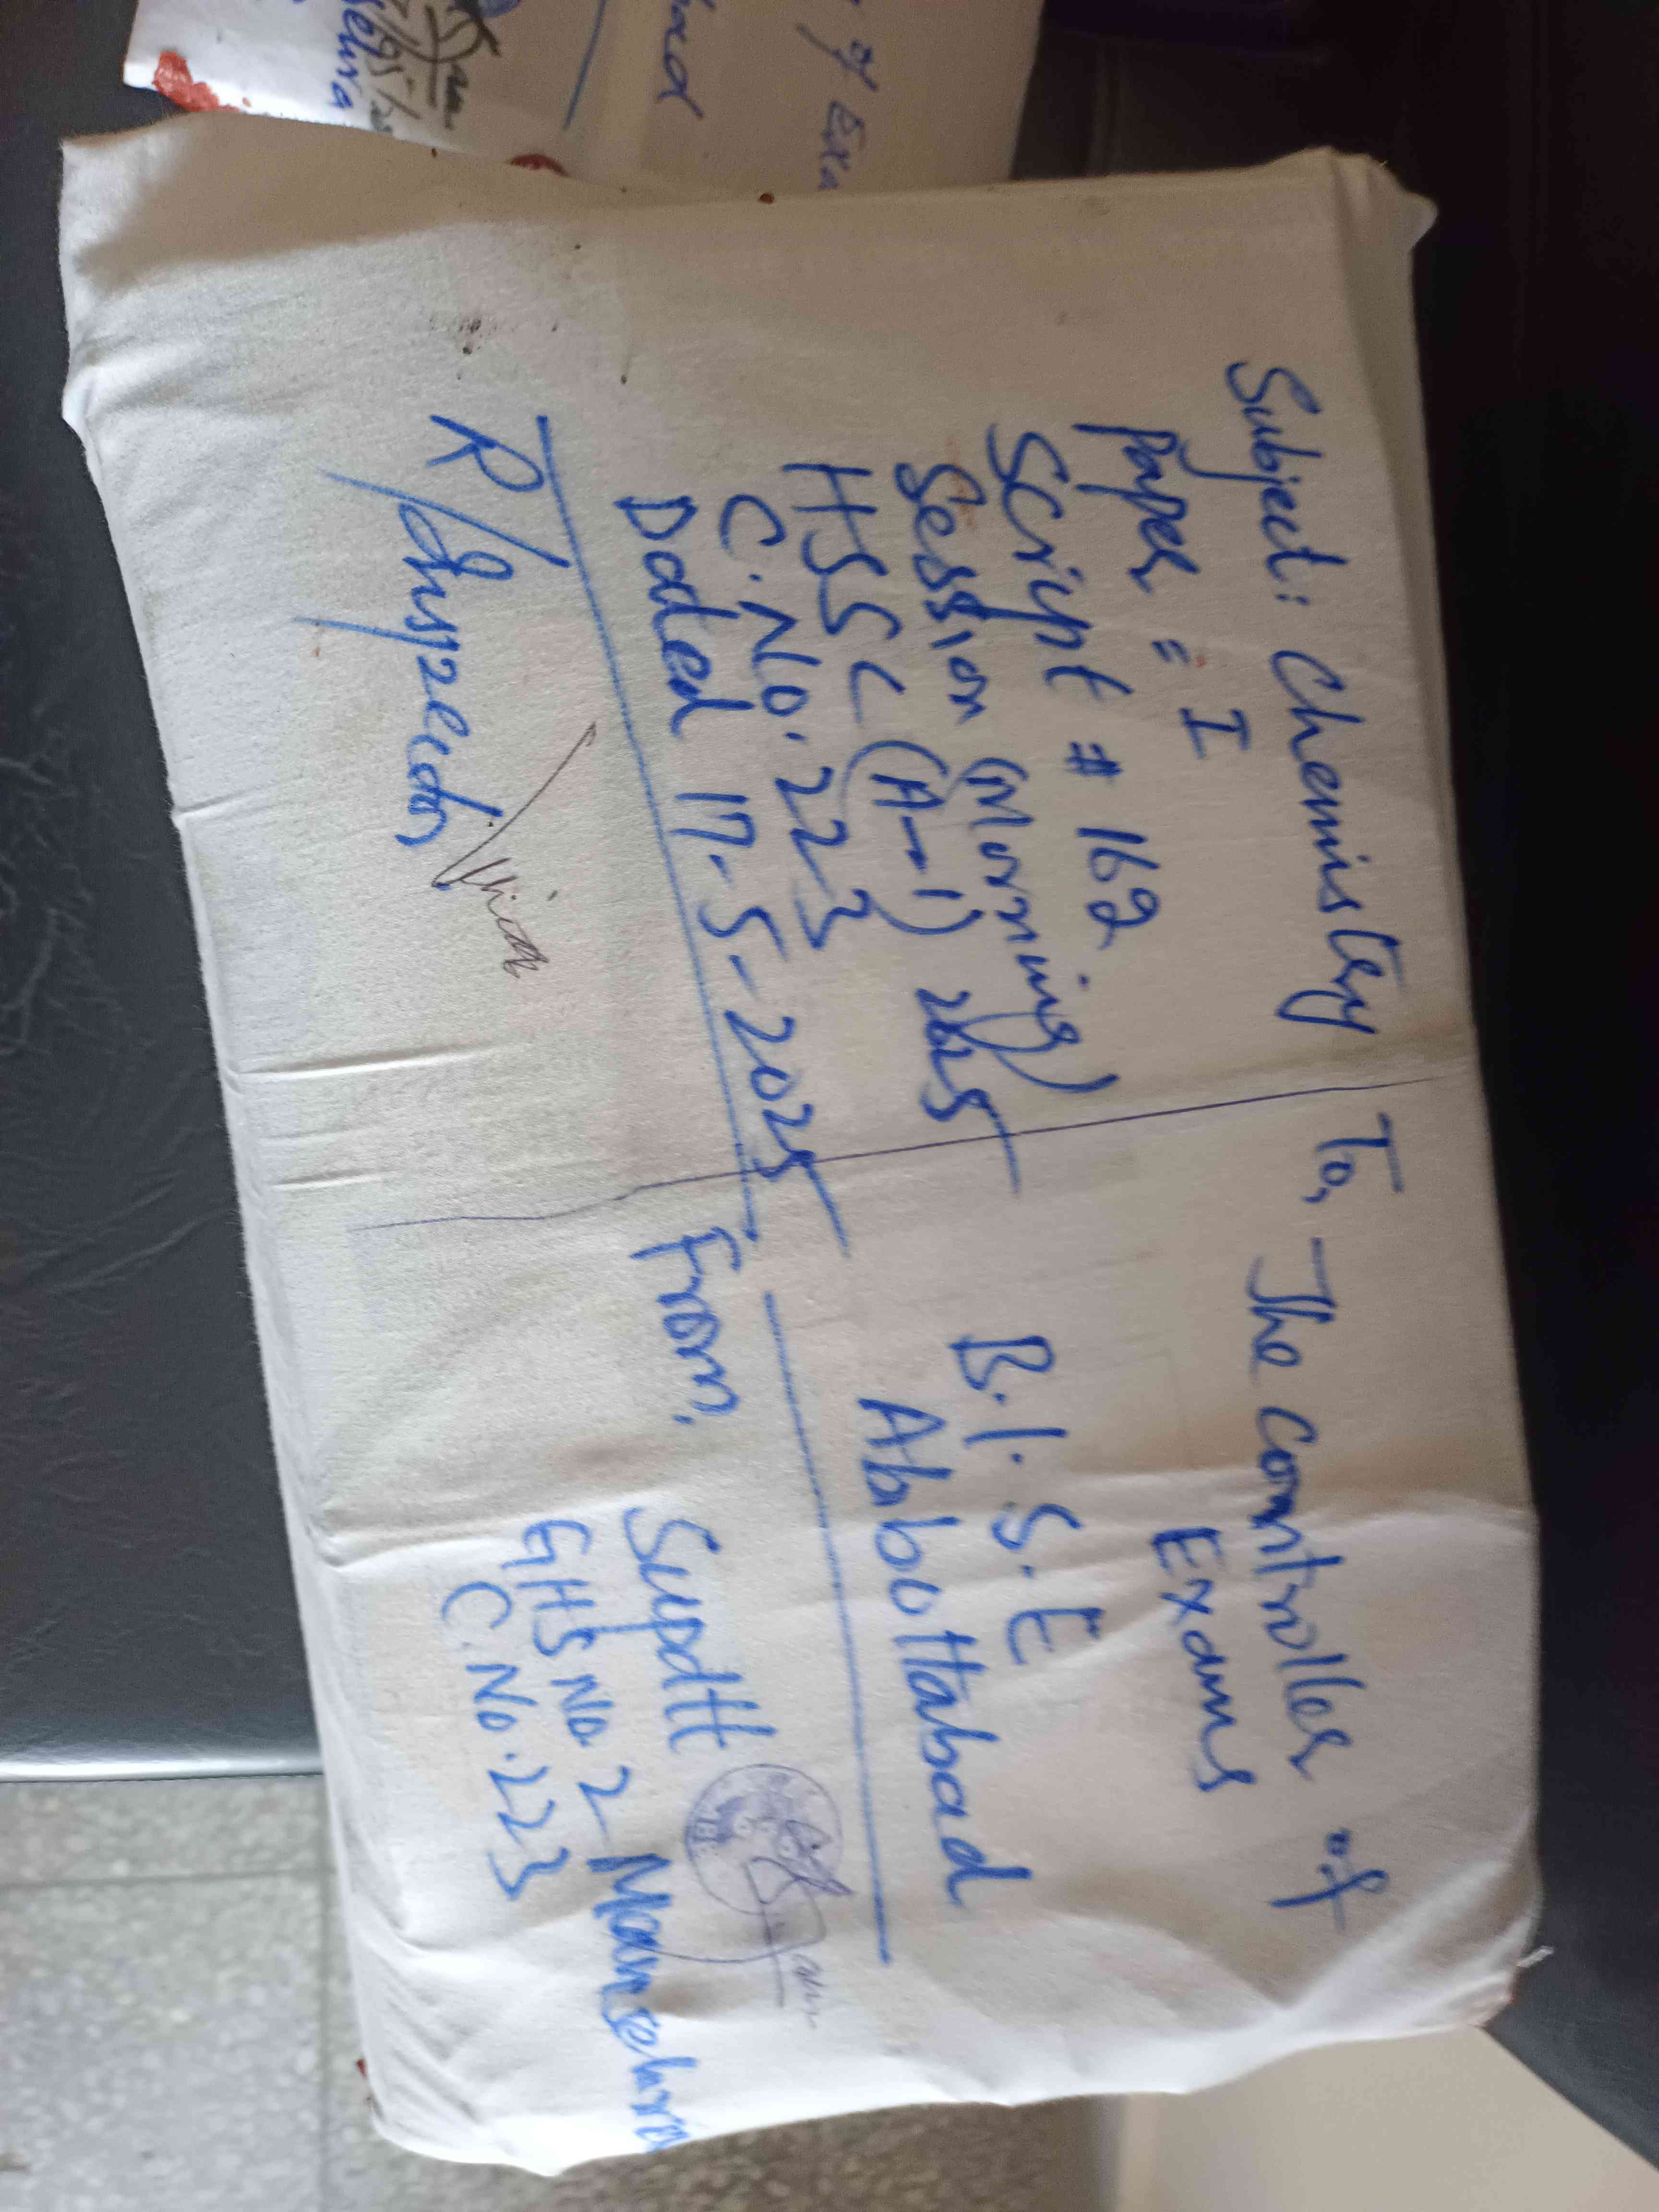 Subject: Chemistry
Paper = I
Script # 162
Session (Morning)
HSSC (A-1) 2025
C.No. 223
Dated 17-5-2025
R/Inspector
To, The Controller of
Exams
B.I.S.E
Abbottabad
From.
Supdtt
GHS No. 2 Mansehra
C.No. 223
of Exa